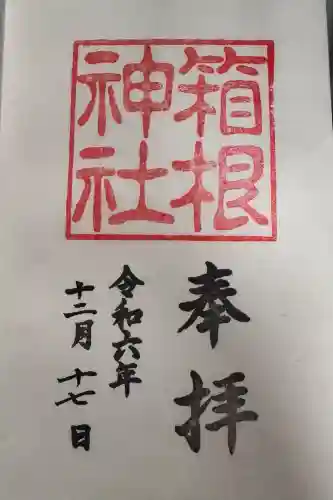 箱根
神社
奉拝
令和六年
十二月十七日